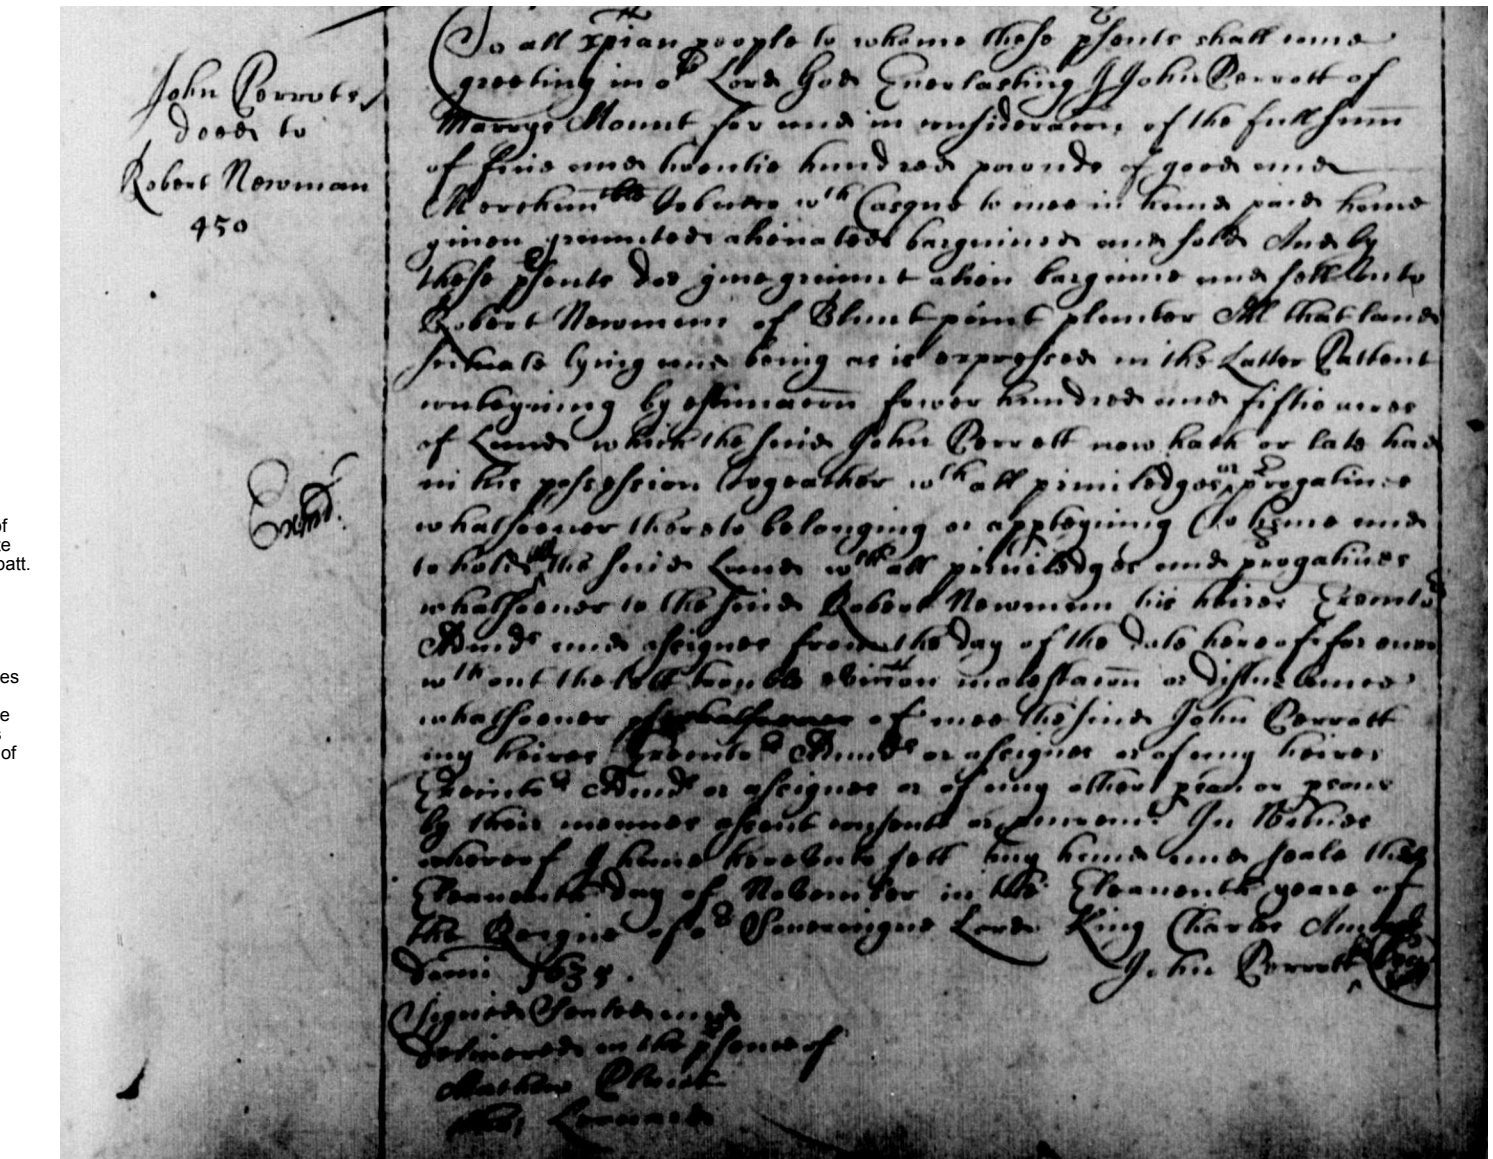 John Perrotts
deed to
Robert Newman
450
of
te
patt.
es
e
s
of
Exmd.
To all xpian people to whome these psents shall come
greeting in or Lord God Everlasting I John Perrott of
Marrys Mount for and in consideracon of the full sum
of five and twentie hundred pounds of good and
Merchantble Tobacco wth Casque to mee in hand paid have
given graunted alienated bargained and sold And by
these psents doe give graunt alien bargaine and sell unto
Robert Newman of Blunt point planter All that land
situate lying and being as is expressed in the Latter Pattent
conteyning by estimacon fower hundred and fiftie acres
of Land which the said John Perrott now hath or late had
in his possession Togeather wth all priviledges or prrogatives
whatsoever thereto belonging or appteyning To have and
to hold the said Land wth all priviledges and prrogatives
whatsoever to the said Robert Newman his heires Executrs
Admrs and assignes from the day of the date hereof for ever
wthout the lett trouble eviccon molestacon or disturbance
whatsoever of mee the said John Perrott
my heires Executrs Admrs or assignes or of any heires
Executrs Admrs or assignes or of any other pson or psons
by their meanes assent consent or In Witnes
whereof I have hereunto sett my hand and seale this
Eleaventh day of November in the Eleaventh yeare of
the Reigne of or Soveraigne Lord King Charles Anno
Domi 1635.
John Perrott
Signed Sealed and
Delivered in the psence of
Mathew
Leonard